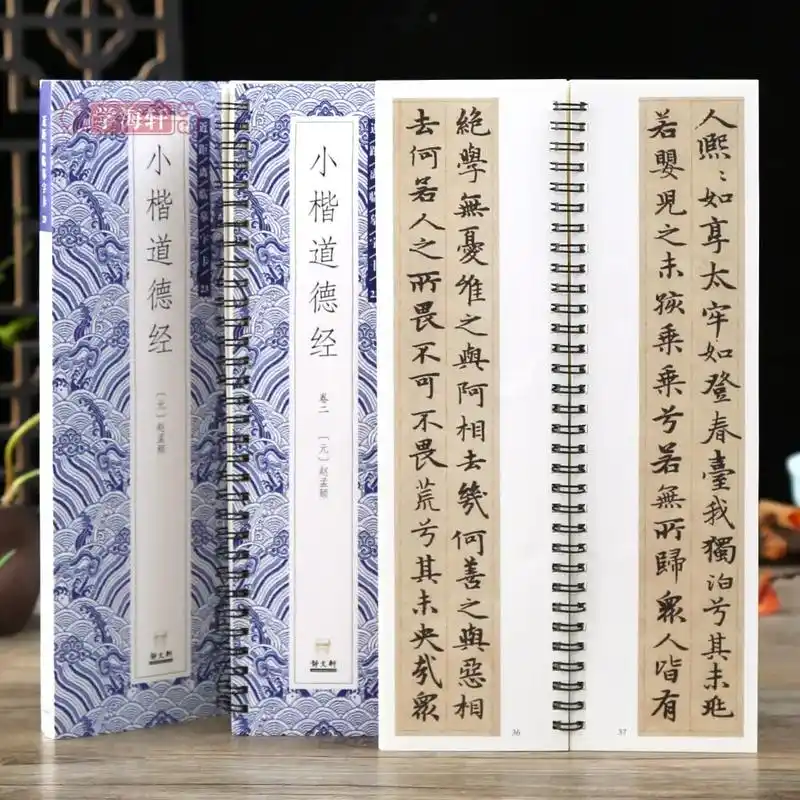 学海轩
近距离临摹字卡
小楷道德经
〔元〕赵孟頫
静文轩
近距离临摹字卡
小楷道德经
卷二 〔元〕赵孟頫
静文轩
絶學無憂維之與阿相去幾何善之與惡相
去何若人之所畏不可不畏荒兮其未央哉眾
36
人熈〻如享太牢如登春臺我獨泊兮其未兆
若嬰兒之未孩乗乗兮若無所歸眾人皆有
37